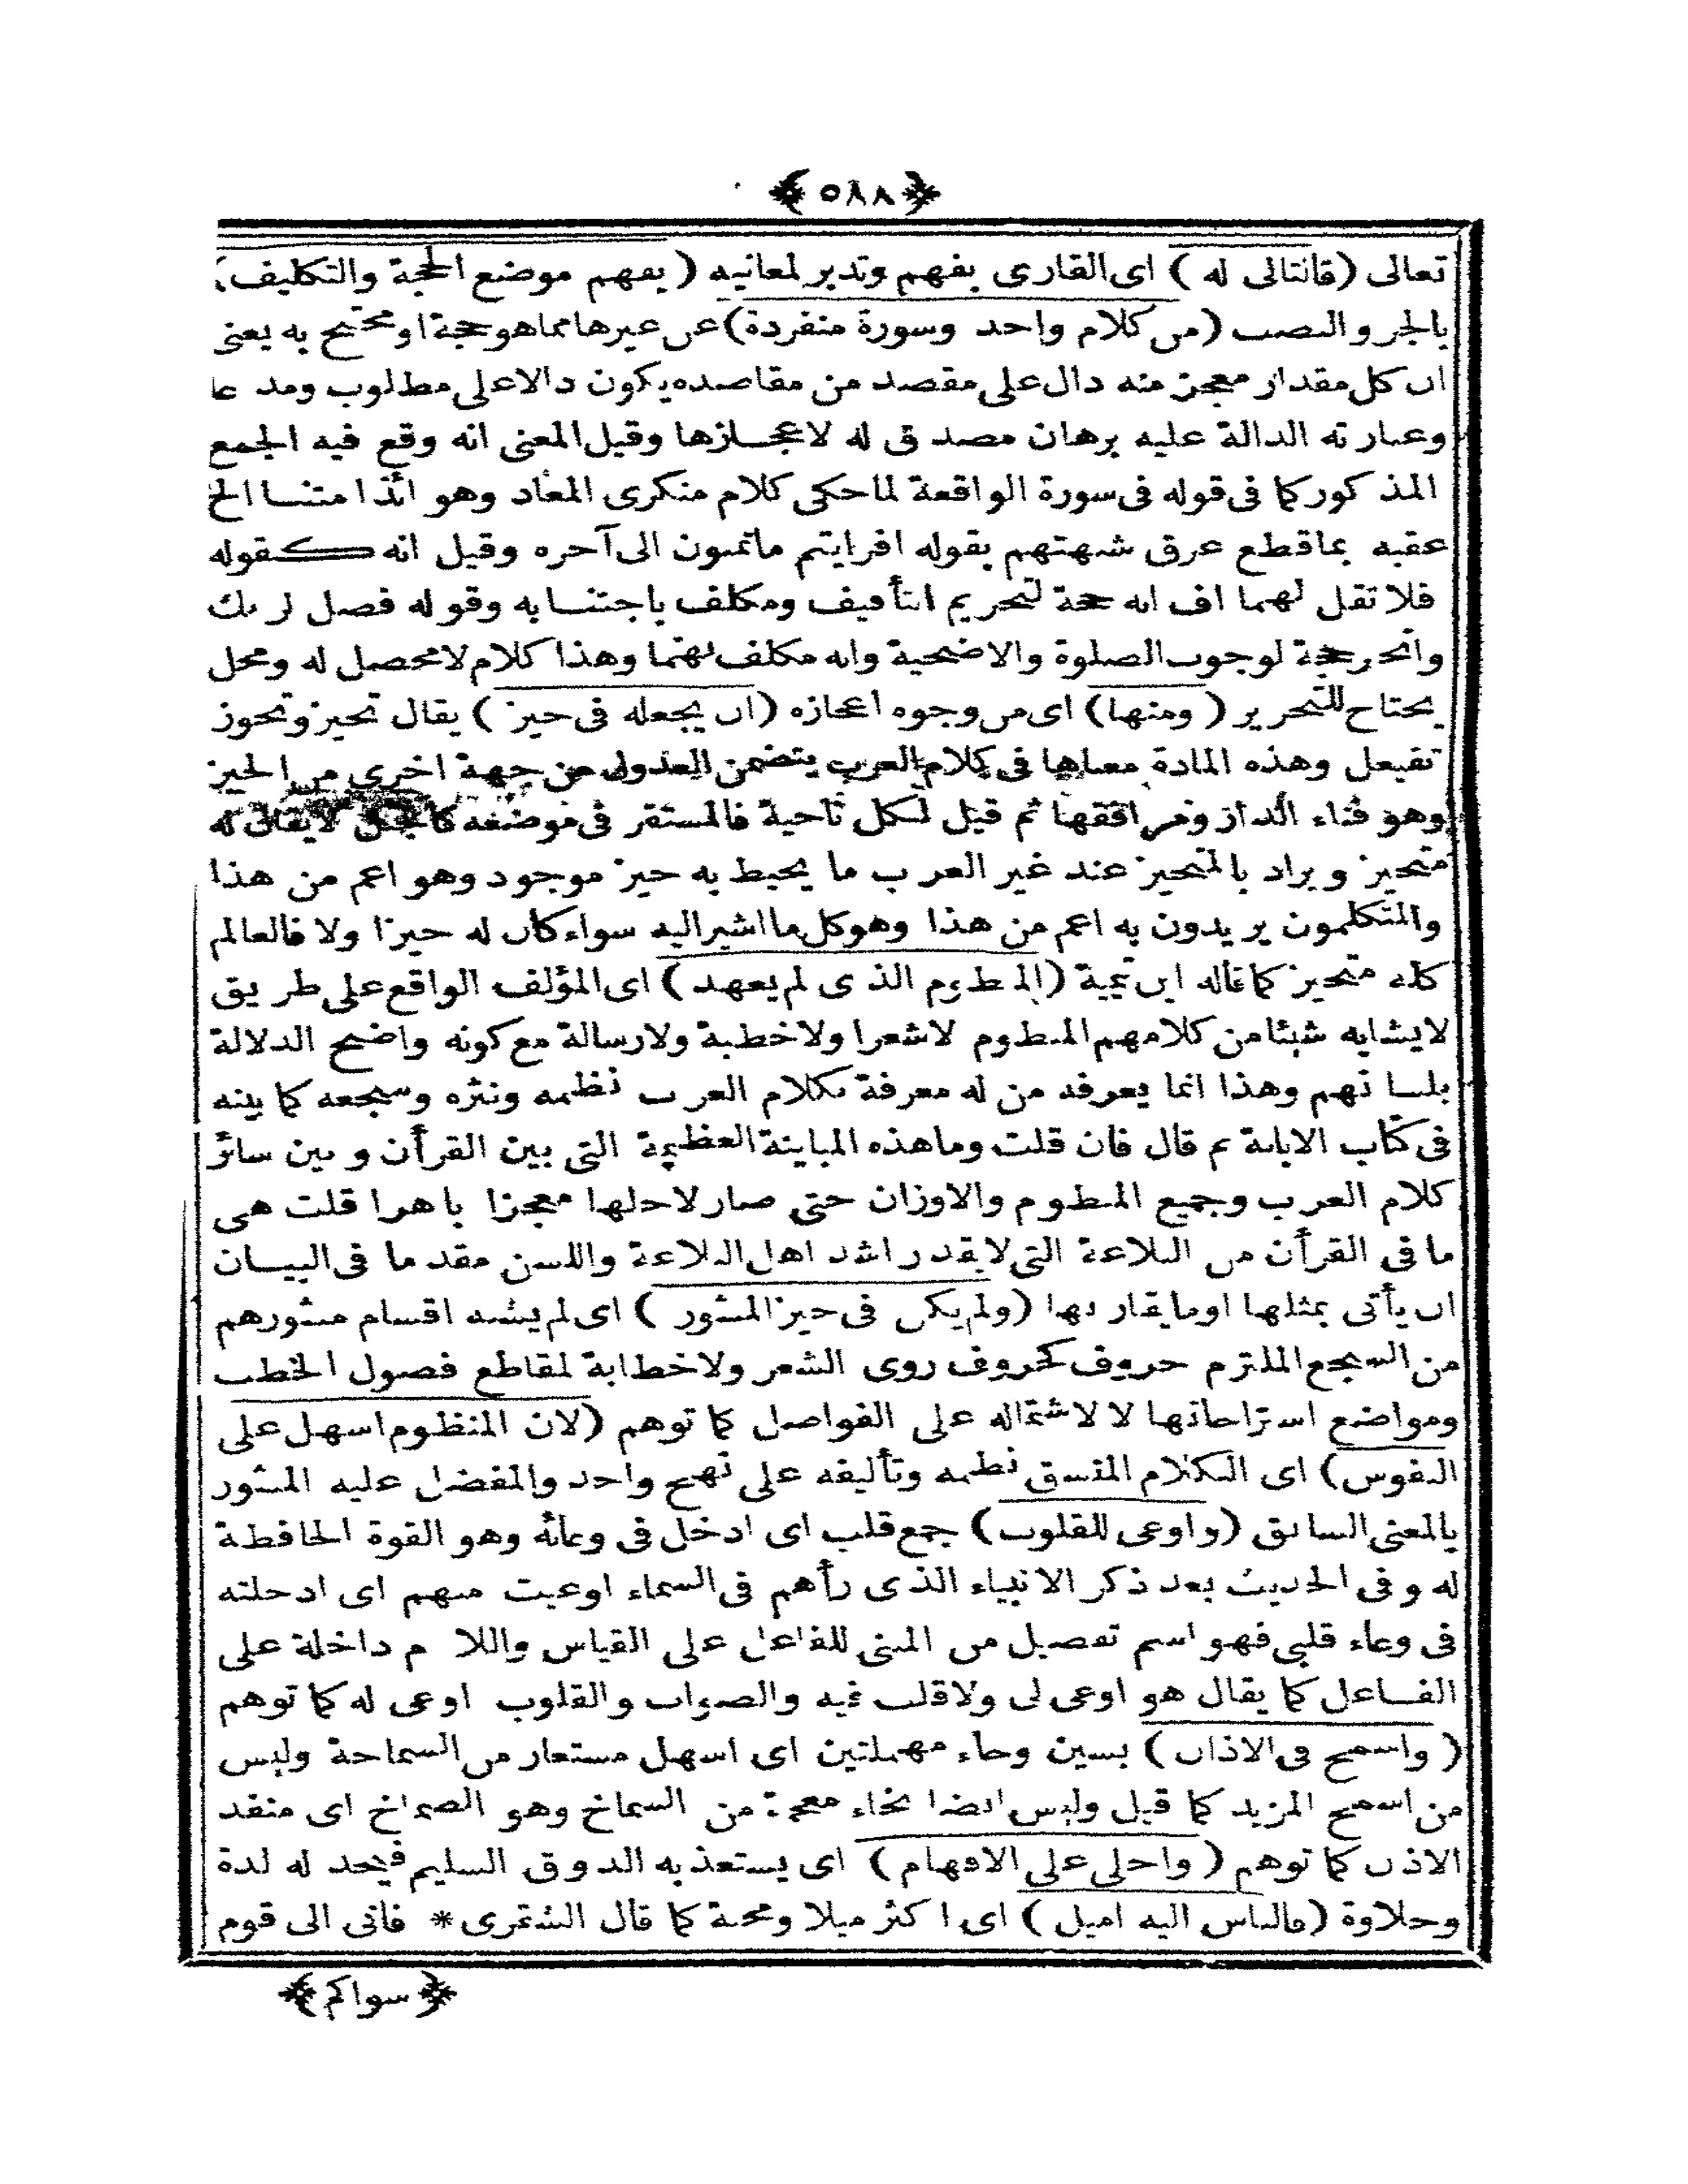 ﴿٥٨٨﴾
تعالى (فالتالى له) اى القارى بفهم وتدبر لمعانيه (يفهم موضع الحجة والتكليف)
بالجر والنصب (من كلام واحد وسورة منفردة) عن غيرها مما هو حجة او محتج به يعنى
ان كل مقدار معجز منه دال على مقصد من مقاصده يكون دالا على مطلوب ومدعا
وعبارته الدالة عليه برهان مصدق له لاعجازها وقيل المعنى انه وقع فيه الجمع
المذكور كما فى قوله فى سورة الواقعة لما حكى كلام منكرى المعاد وهو ائذا متنا الخ
عقبه بما قطع عرق شبهتهم بقوله افرايتم ماتمنون الى آخره وقيل انه كقوله
فلا تقل لهما اف انه حجة لتحريم التأفيف ومكلف باجتنابه وقوله فصل لربك
وانحر حجة لوجوب الصلوة والاضحية وانه مكلف بهما وهذا كلام لامحصل له ومحل
يحتاج للتحرير (ومنها) اى من وجوه اعجازه (ان يجعله فى حيز) يقال تحيز وتحوز
تفيعل وهذه المادة معناها فى كلام العرب يتضمن العدول من جهة اخرى من الحيز
وهو فناء الدار ومرافقها ثم قيل لكل ناحية فالمستقر فى موضعه كالجبل لايقال له
متحيز ويراد بالمتحيز عند غير العرب ما يحيط به حيز موجود وهو اعم من هذا
والمتكلمون يريدون به اعم من هذا وهو كل ما اشير اليه سواء كان له حيزا ولا فالعالم
كله متحيز كما قاله ابن تيمية (المنظوم الذى لم يعهد) اى المؤلف الواقع على طريق
لايشابه شيئا من كلامهم المنظوم لاشعرا ولاخطبة ولارسالة مع كونه واضح الدلالة
بلسانهم وهذا انما يعرفه من له معرفة بكلام العرب نظمه ونثره وسجعه كما بينه
فى كتاب الابانة ثم قال فان قلت وماهذه المباينة العظيمة التى بين القرأن وبين سائر
كلام العرب وجميع المنظوم والاوزان حتى صار لاجلها معجزا باهرا قلت هى
ما فى القرأن من البلاغة التى لايقدر اشد اهل البلاغة واللسن مقدما فى البيان
ان يأتى بمثلها اوما يقاربها (ولم يكن فى حيز المنثور) اى لم يشبه اقسام منثورهم
من السجع الملتزم حروف كحروف روى الشعر ولاخطابة لمقاطع فصول الخطب
ومواضع استراحاتها لا لاشتماله على الفواصل كما توهم (لان المنظوم اسهل على
النفوس) اى الكلام المتسق نظمه وتأليفه على نهج واحد والمفضل عليه المنثور
بالمعنى السابق (واوعى للقلوب) جمع قلب اى ادخل فى وعائه وهو القوة الحافظة
له وفى الحديث بعد ذكر الانبياء الذى رأهم فى السماء اوعيت منهم اى ادخلته
فى وعاء قلبى فهو اسم تفصيل من المبنى للفاعل على القياس واللام داخلة على
الفاعل كما يقال هو اوعى لى ولاقلب فيه والصواب والقلوب اوعى له كما توهم
(واسمح فى الاذان) بسين وحاء مهملتين اى اسهل مستعار من السماحة وليس
من اسمح المزيد كما قيل وليس ايضا بخاء معجمة من السماخ وهو الصماخ اى منفذ
الاذن كما توهم (واحلى على الافهام) اى يستعذبه الذوق السليم فيجد له لذة
وحلاوة (فالناس اليه اميل) اى اكثر ميلا ومحبة كما قال الشنفرى * فانى الى قوم
﴿سواكم﴾